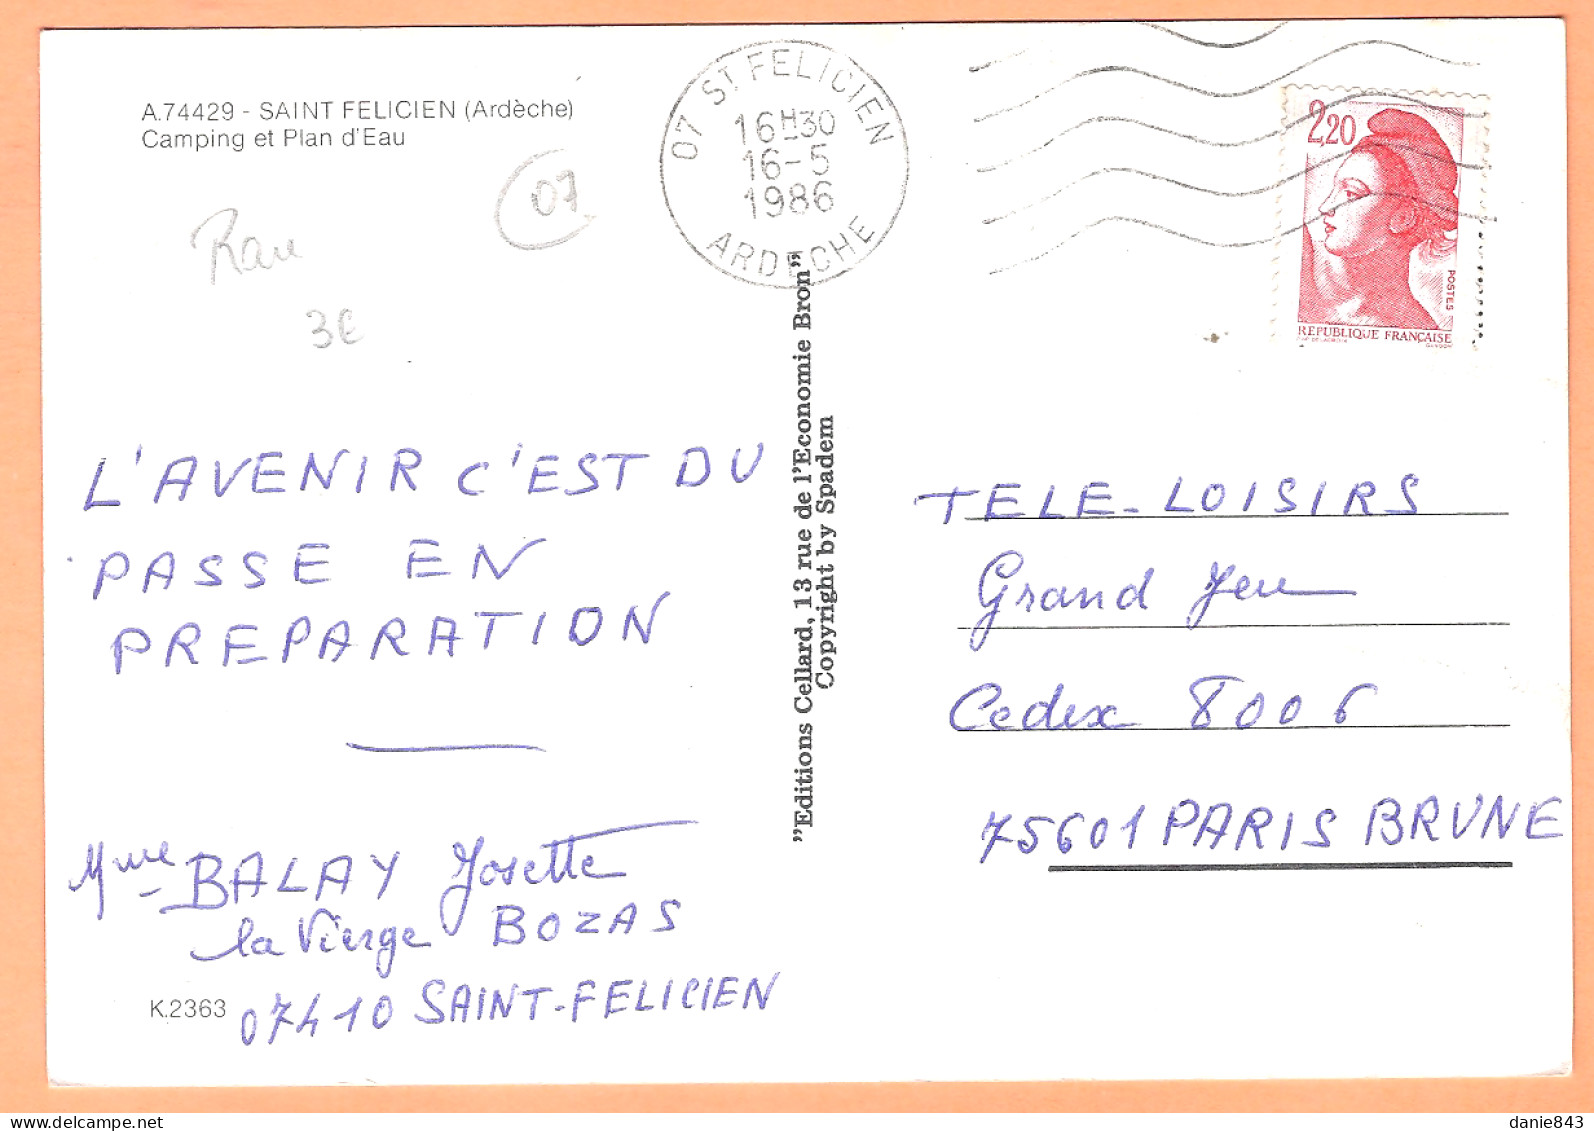 A.74429 - SAINT FELICIEN (Ardèche)
Camping et Plan d'Eau
07
Rare
3€
07 ST FELICIEN
16H30
16-5
1986
ARDECHE
2,20
POSTES
REPUBLIQUE FRANÇAISE
GANDON
L'AVENIR C'EST DU
PASSE EN
PREPARATION
Mme BALAY Josette
la Vierge BOZAS
07410 SAINT-FELICIEN
K.2363
"Editions Cellard, 13 rue de l'Economie Bron"
Copyright by Spadem
TELE-LOISIRS
Grand Jeu
Cedex 8006
75601 PARIS BRUNE
danie843